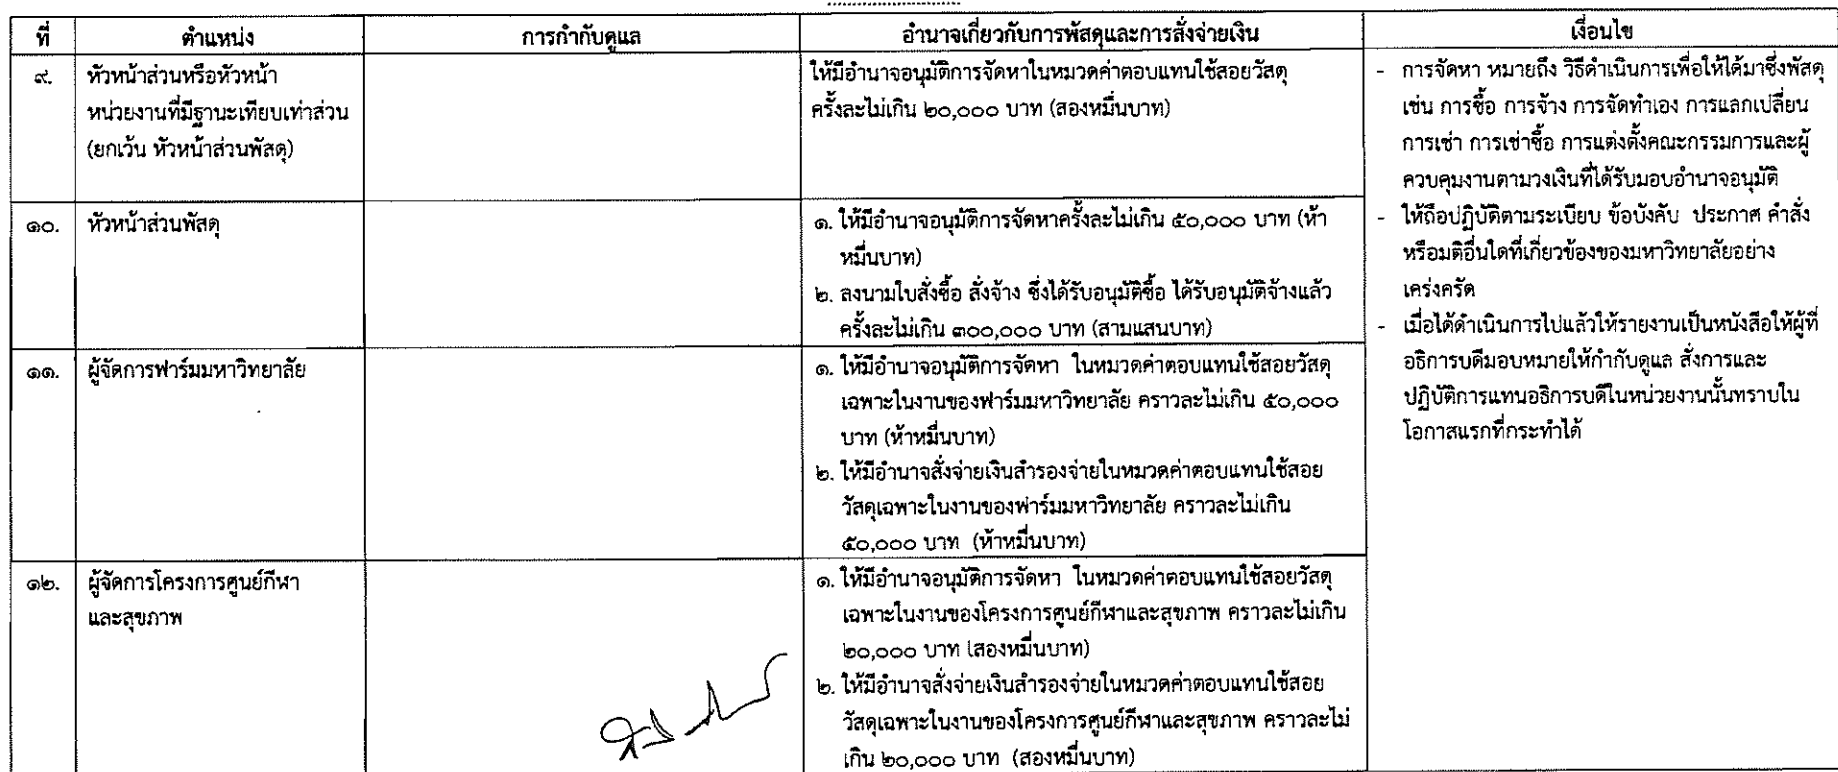 ที่ ตำแหน่ง การกำกับดูแล อำนาจเกี่ยวกับการพัสดุและการสั่งจ่ายเงิน เงื่อนไข
๙. หัวหน้าส่วนหรือหัวหน้า
หน่วยงานที่มีฐานะเทียบเท่าส่วน
(ยกเว้น หัวหน้าส่วนพัสดุ)
ให้มีอำนาจอนุมัติการจัดหาในหมวดค่าตอบแทนใช้สอยวัสดุ
ครั้งละไม่เกิน ๒๐,๐๐๐ บาท (สองหมื่นบาท)
- การจัดหา หมายถึง วิธีดำเนินการเพื่อให้ได้มาซึ่งพัสดุ
เช่น การซื้อ การจ้าง การจัดทำเอง การแลกเปลี่ยน
การเช่า การเช่าซื้อ การแต่งตั้งคณะกรรมการและผู้
ควบคุมงานตามวงเงินที่ได้รับมอบอำนาจอนุมัติ
- ให้ถือปฏิบัติตามระเบียบ ข้อบังคับ ประกาศ คำสั่ง
หรือมติอื่นใดที่เกี่ยวข้องของมหาวิทยาลัยอย่าง
เคร่งครัด
- เมื่อได้ดำเนินการไปแล้วให้รายงานเป็นหนังสือให้ผู้ที่
อธิการบดีมอบหมายให้กำกับดูแล สั่งการและ
ปฏิบัติการแทนอธิการบดีในหน่วยงานนั้นทราบใน
โอกาสแรกที่กระทำได้
๑๐. หัวหน้าส่วนพัสดุ
๑. ให้มีอำนาจอนุมัติการจัดหาครั้งละไม่เกิน ๕๐,๐๐๐ บาท (ห้า
หมื่นบาท)
๒. ลงนามใบสั่งซื้อ สั่งจ้าง ซึ่งได้รับอนุมัติซื้อ ได้รับอนุมัติจ้างแล้ว
ครั้งละไม่เกิน ๓๐๐,๐๐๐ บาท (สามแสนบาท)
๑๑. ผู้จัดการฟาร์มมหาวิทยาลัย
๑. ให้มีอำนาจอนุมัติการจัดหา ในหมวดค่าตอบแทนใช้สอยวัสดุ
เฉพาะในงานของฟาร์มมหาวิทยาลัย คราวละไม่เกิน ๕๐,๐๐๐
บาท (ห้าหมื่นบาท)
๒. ให้มีอำนาจสั่งจ่ายเงินสำรองจ่ายในหมวดค่าตอบแทนใช้สอย
วัสดุเฉพาะในงานของฟาร์มมหาวิทยาลัย คราวละไม่เกิน
๕๐,๐๐๐ บาท (ห้าหมื่นบาท)
๑๒. ผู้จัดการโครงการศูนย์กีฬา
และสุขภาพ
๑. ให้มีอำนาจอนุมัติการจัดหา ในหมวดค่าตอบแทนใช้สอยวัสดุ
เฉพาะในงานของโครงการศูนย์กีฬาและสุขภาพ คราวละไม่เกิน
๒๐,๐๐๐ บาท (สองหมื่นบาท)
๒. ให้มีอำนาจสั่งจ่ายเงินสำรองจ่ายในหมวดค่าตอบแทนใช้สอย
วัสดุเฉพาะในงานของโครงการศูนย์กีฬาและสุขภาพ คราวละไม่
เกิน ๒๐,๐๐๐ บาท (สองหมื่นบาท)